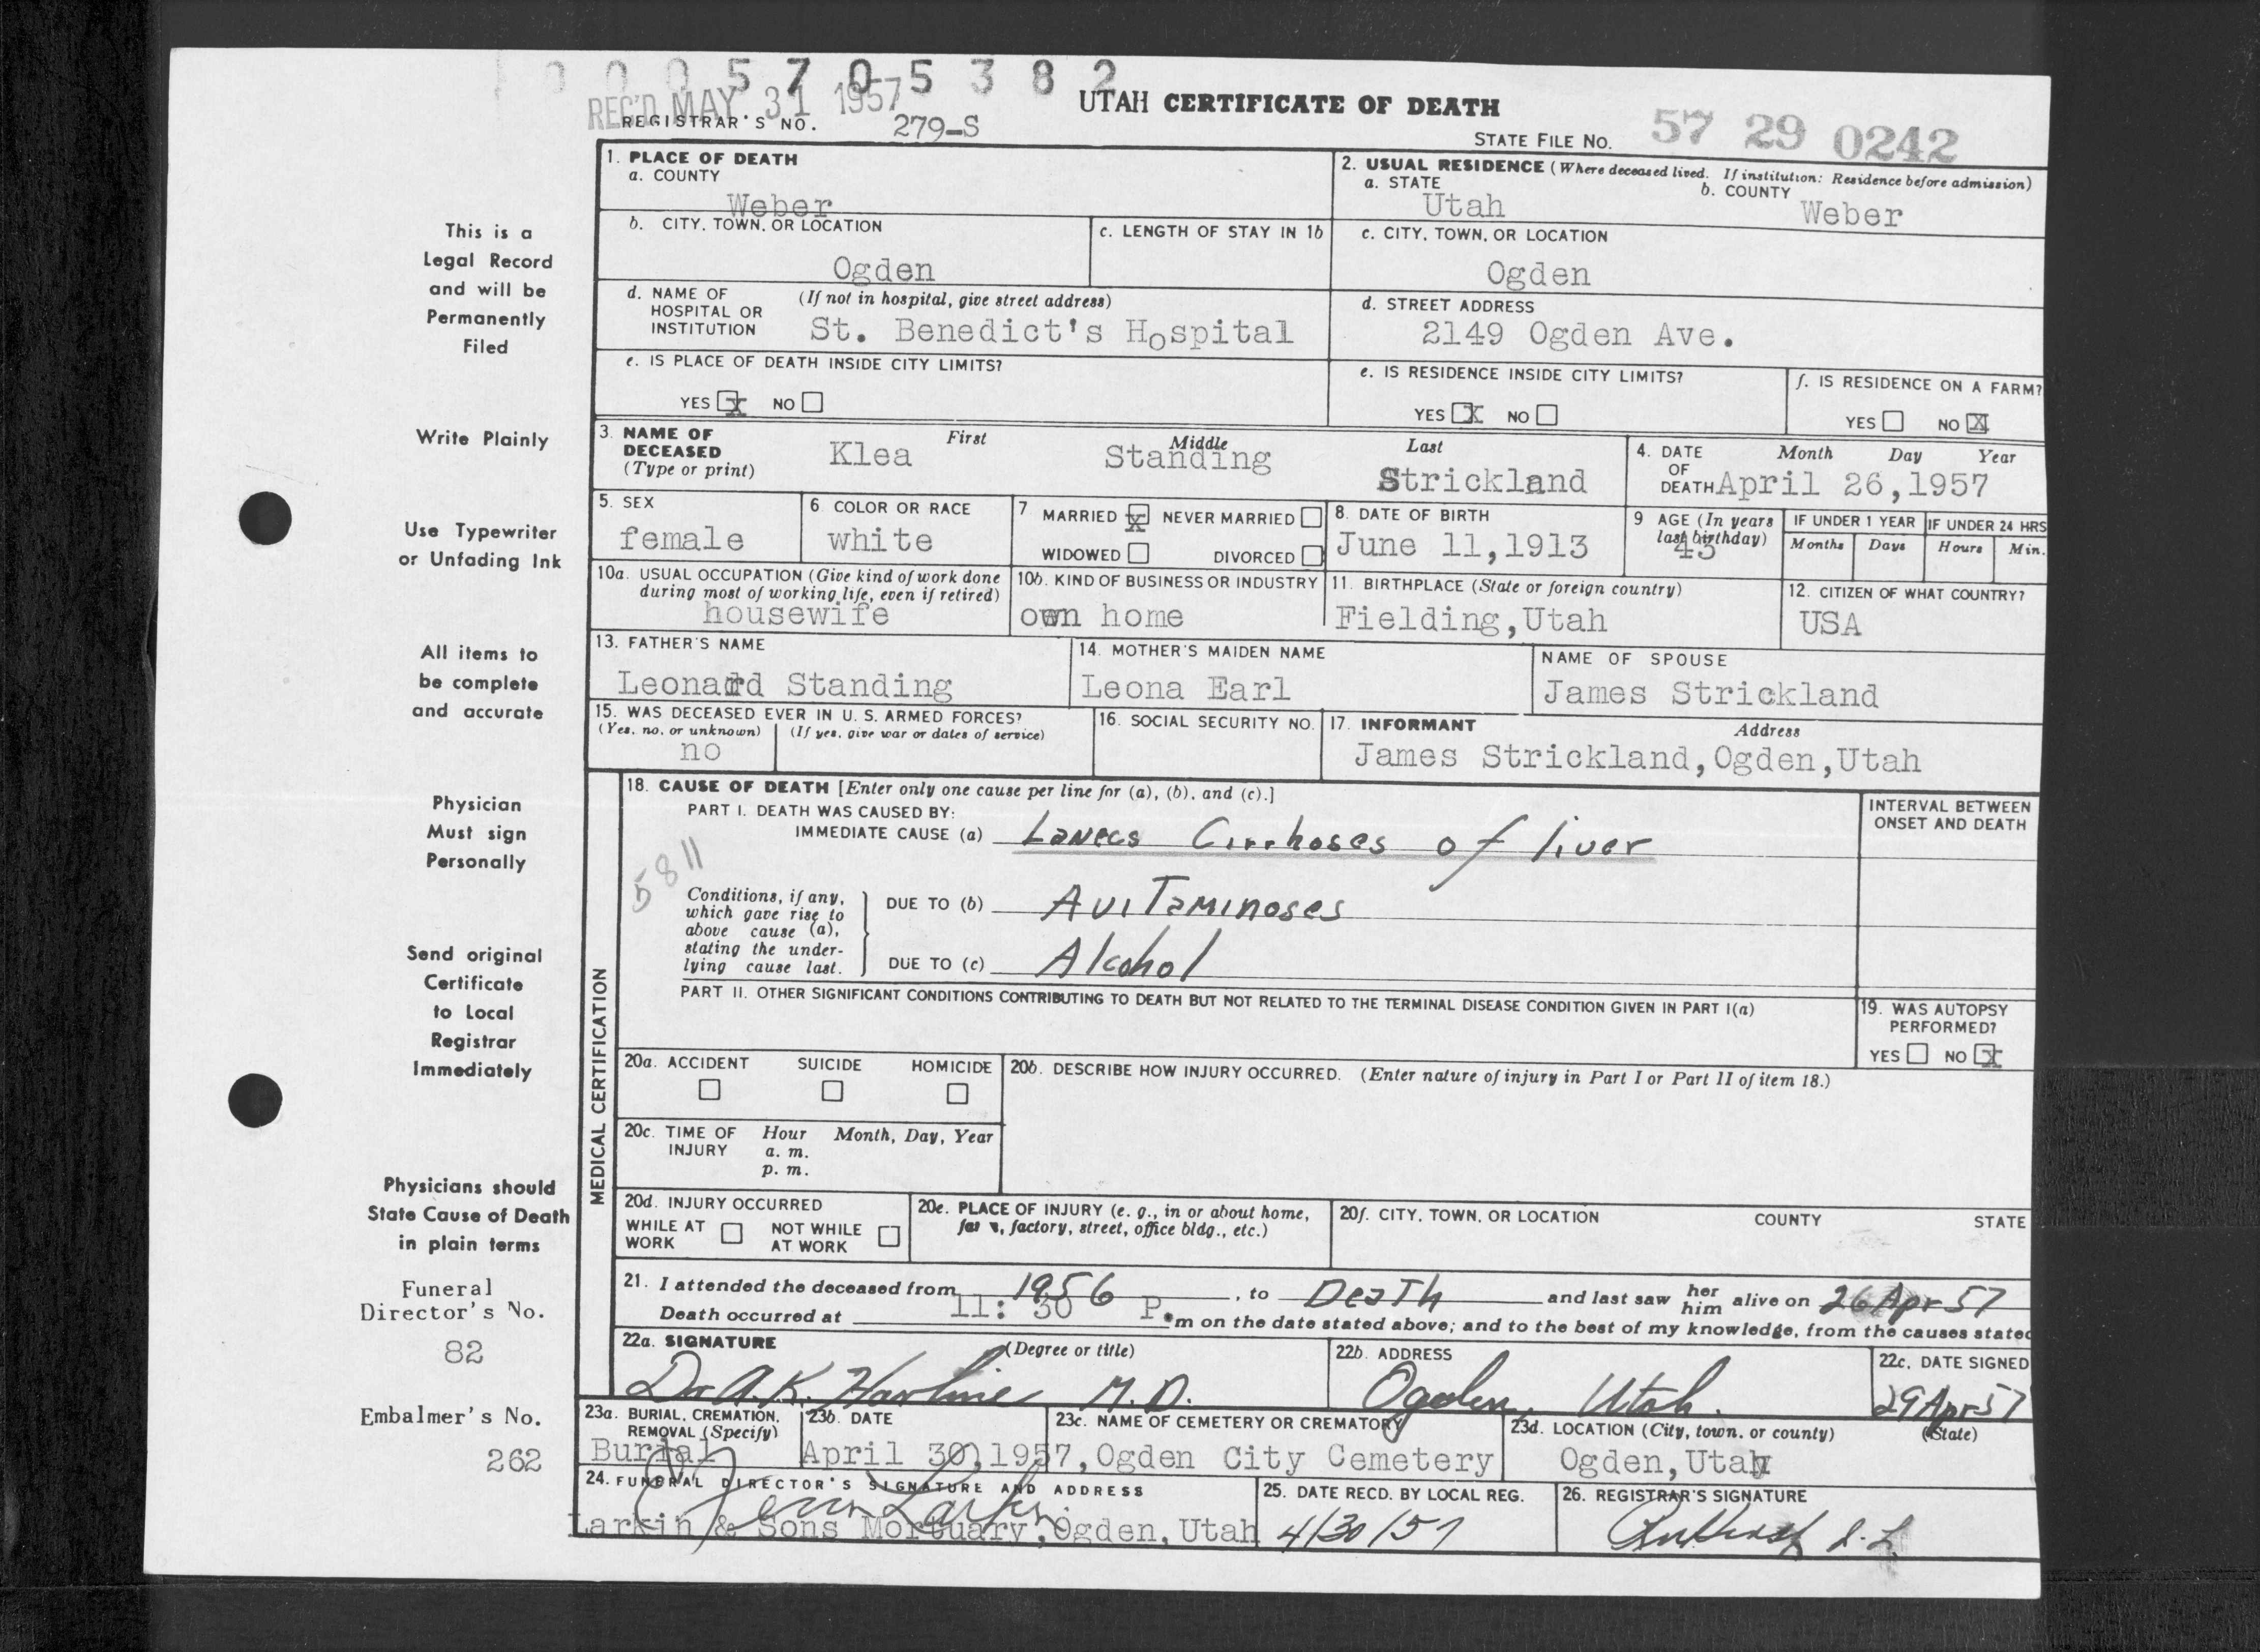 0 0 0 5 7 0 5 3 8 2
REC'D MAY 31 1957
UTAH CERTIFICATE OF DEATH
REGISTRAR'S NO. 279-S
STATE FILE NO. 57 29 0242
1. PLACE OF DEATH
a. COUNTY
Weber
2. USUAL RESIDENCE (Where deceased lived. If institution: Residence before admission)
a. STATE
Utah
b. COUNTY
Weber
b. CITY, TOWN, OR LOCATION
Ogden
c. LENGTH OF STAY IN 1b
c. CITY, TOWN, OR LOCATION
Ogden
d. NAME OF HOSPITAL OR INSTITUTION
(If not in hospital, give street address)
St. Benedict's Hospital
d. STREET ADDRESS
2149 Ogden Ave.
e. IS PLACE OF DEATH INSIDE CITY LIMITS?
YES X NO
e. IS RESIDENCE INSIDE CITY LIMITS?
YES X NO
f. IS RESIDENCE ON A FARM?
YES NO X
3. NAME OF DECEASED
(Type or print)
First Middle Last
Klea Standing Strickland
4. DATE OF DEATH
Month Day Year
April 26,1957
5. SEX
female
6 COLOR OR RACE
white
7 MARRIED X NEVER MARRIED
WIDOWED DIVORCED
8. DATE OF BIRTH
June 11,1913
9 AGE (In years last birthday)
43
IF UNDER 1 YEAR
Months Days
IF UNDER 24 HRS
Hours Min.
10a. USUAL OCCUPATION (Give kind of work done during most of working life, even if retired)
housewife
10b. KIND OF BUSINESS OR INDUSTRY
own home
11. BIRTHPLACE (State or foreign country)
Fielding,Utah
12. CITIZEN OF WHAT COUNTRY?
USA
13. FATHER'S NAME
Leonard Standing
14. MOTHER'S MAIDEN NAME
Leona Earl
NAME OF SPOUSE
James Strickland
15. WAS DECEASED EVER IN U. S. ARMED FORCES?
(Yes, no, or unknown) (If yes, give war or dates of service)
no
16. SOCIAL SECURITY NO.
17. INFORMANT Address
James Strickland,Ogden,Utah
18. CAUSE OF DEATH [Enter only one cause per line for (a), (b), and (c).]
INTERVAL BETWEEN
ONSET AND DEATH
PART I. DEATH WAS CAUSED BY:
IMMEDIATE CAUSE (a) Lanecs Cirrhoses of liver
5811
Conditions, if any,
which gave rise to
above cause (a),
stating the under-
lying cause last.
DUE TO (b) Avitaminoses
DUE TO (c) Alcohol
PART II. OTHER SIGNIFICANT CONDITIONS CONTRIBUTING TO DEATH BUT NOT RELATED TO THE TERMINAL DISEASE CONDITION GIVEN IN PART I(a)
19. WAS AUTOPSY PERFORMED?
YES NO X
MEDICAL CERTIFICATION
20a. ACCIDENT SUICIDE HOMICIDE
20b. DESCRIBE HOW INJURY OCCURRED. (Enter nature of injury in Part I or Part II of item 18.)
20c. TIME OF INJURY
Hour Month, Day, Year
a. m.
p. m.
20d. INJURY OCCURRED
WHILE AT WORK NOT WHILE AT WORK
20e. PLACE OF INJURY (e. g., in or about home,
factory, street, office bldg., etc.)
20f. CITY, TOWN, OR LOCATION COUNTY STATE
21. I attended the deceased from 1956, to Death and last saw her him alive on 26 Apr 57
Death occurred at 11: 30 P.m on the date stated above; and to the best of my knowledge, from the causes stated
22a. SIGNATURE (Degree or title)
Dr A.K. Hartine M.D.
22b. ADDRESS
Ogden, Utah.
22c. DATE SIGNED
29 Apr 57
23a. BURIAL, CREMATION, REMOVAL (Specify)
Burial
23b. DATE
April 30,1957,
23c. NAME OF CEMETERY OR CREMATORY
Ogden City Cemetery
23d. LOCATION (City, town, or county) (State)
Ogden,Utah
24. FUNERAL DIRECTOR'S SIGNATURE AND ADDRESS
Larkin
Larkin & Sons Mortuary,Ogden,Utah
25. DATE RECD. BY LOCAL REG.
4/30/57
26. REGISTRAR'S SIGNATURE
This is a
Legal Record
and will be
Permanently
Filed
Write Plainly
Use Typewriter
or Unfading Ink
All items to
be complete
and accurate
Physician
Must sign
Personally
Send original
Certificate
to Local
Registrar
Immediately
Physicians should
State Cause of Death
in plain terms
Funeral
Director's No.
82
Embalmer's No.
262